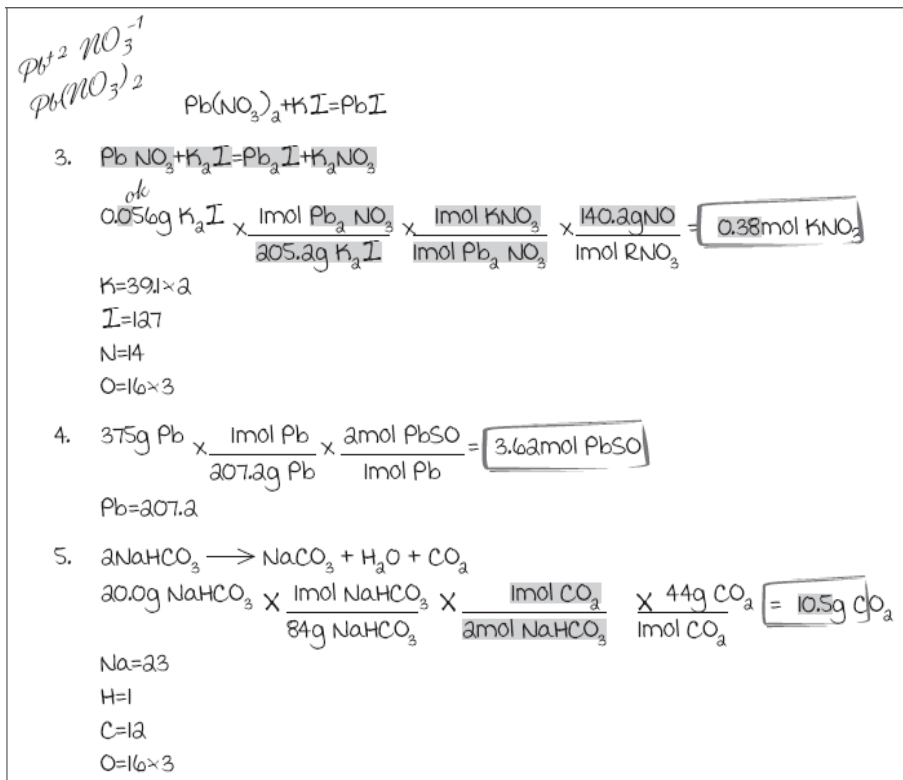 Pb⁺² NO₃⁻¹
Pb(NO₃)₂
Pb(NO₃)₂+KI=PbI
3. Pb NO₃+K₂I=Pb₂I+K₂NO₃
ok
0.056g K₂I × 1mol Pb₂ NO₃/205.2g K₂I × 1mol KNO₃/1mol Pb₂ NO₃ × 140.2gNO/1mol RNO₃ = 0.38mol KNO₃
K=39.1×2
I=127
N=14
O=16×3
4. 375g Pb × 1mol Pb/207.2g Pb × 2mol PbSO/1mol Pb = 3.62mol PbSO
Pb=207.2
5. 2NaHCO₃ ⟶ NaCO₃ + H₂O + CO₂
20.0g NaHCO₃ × 1mol NaHCO₃/84g NaHCO₃ × 1mol CO₂/2mol NaHCO₃ × 44g CO₂/1mol CO₂ = 10.5g CO₂
Na=23
H=1
C=12
O=16×3